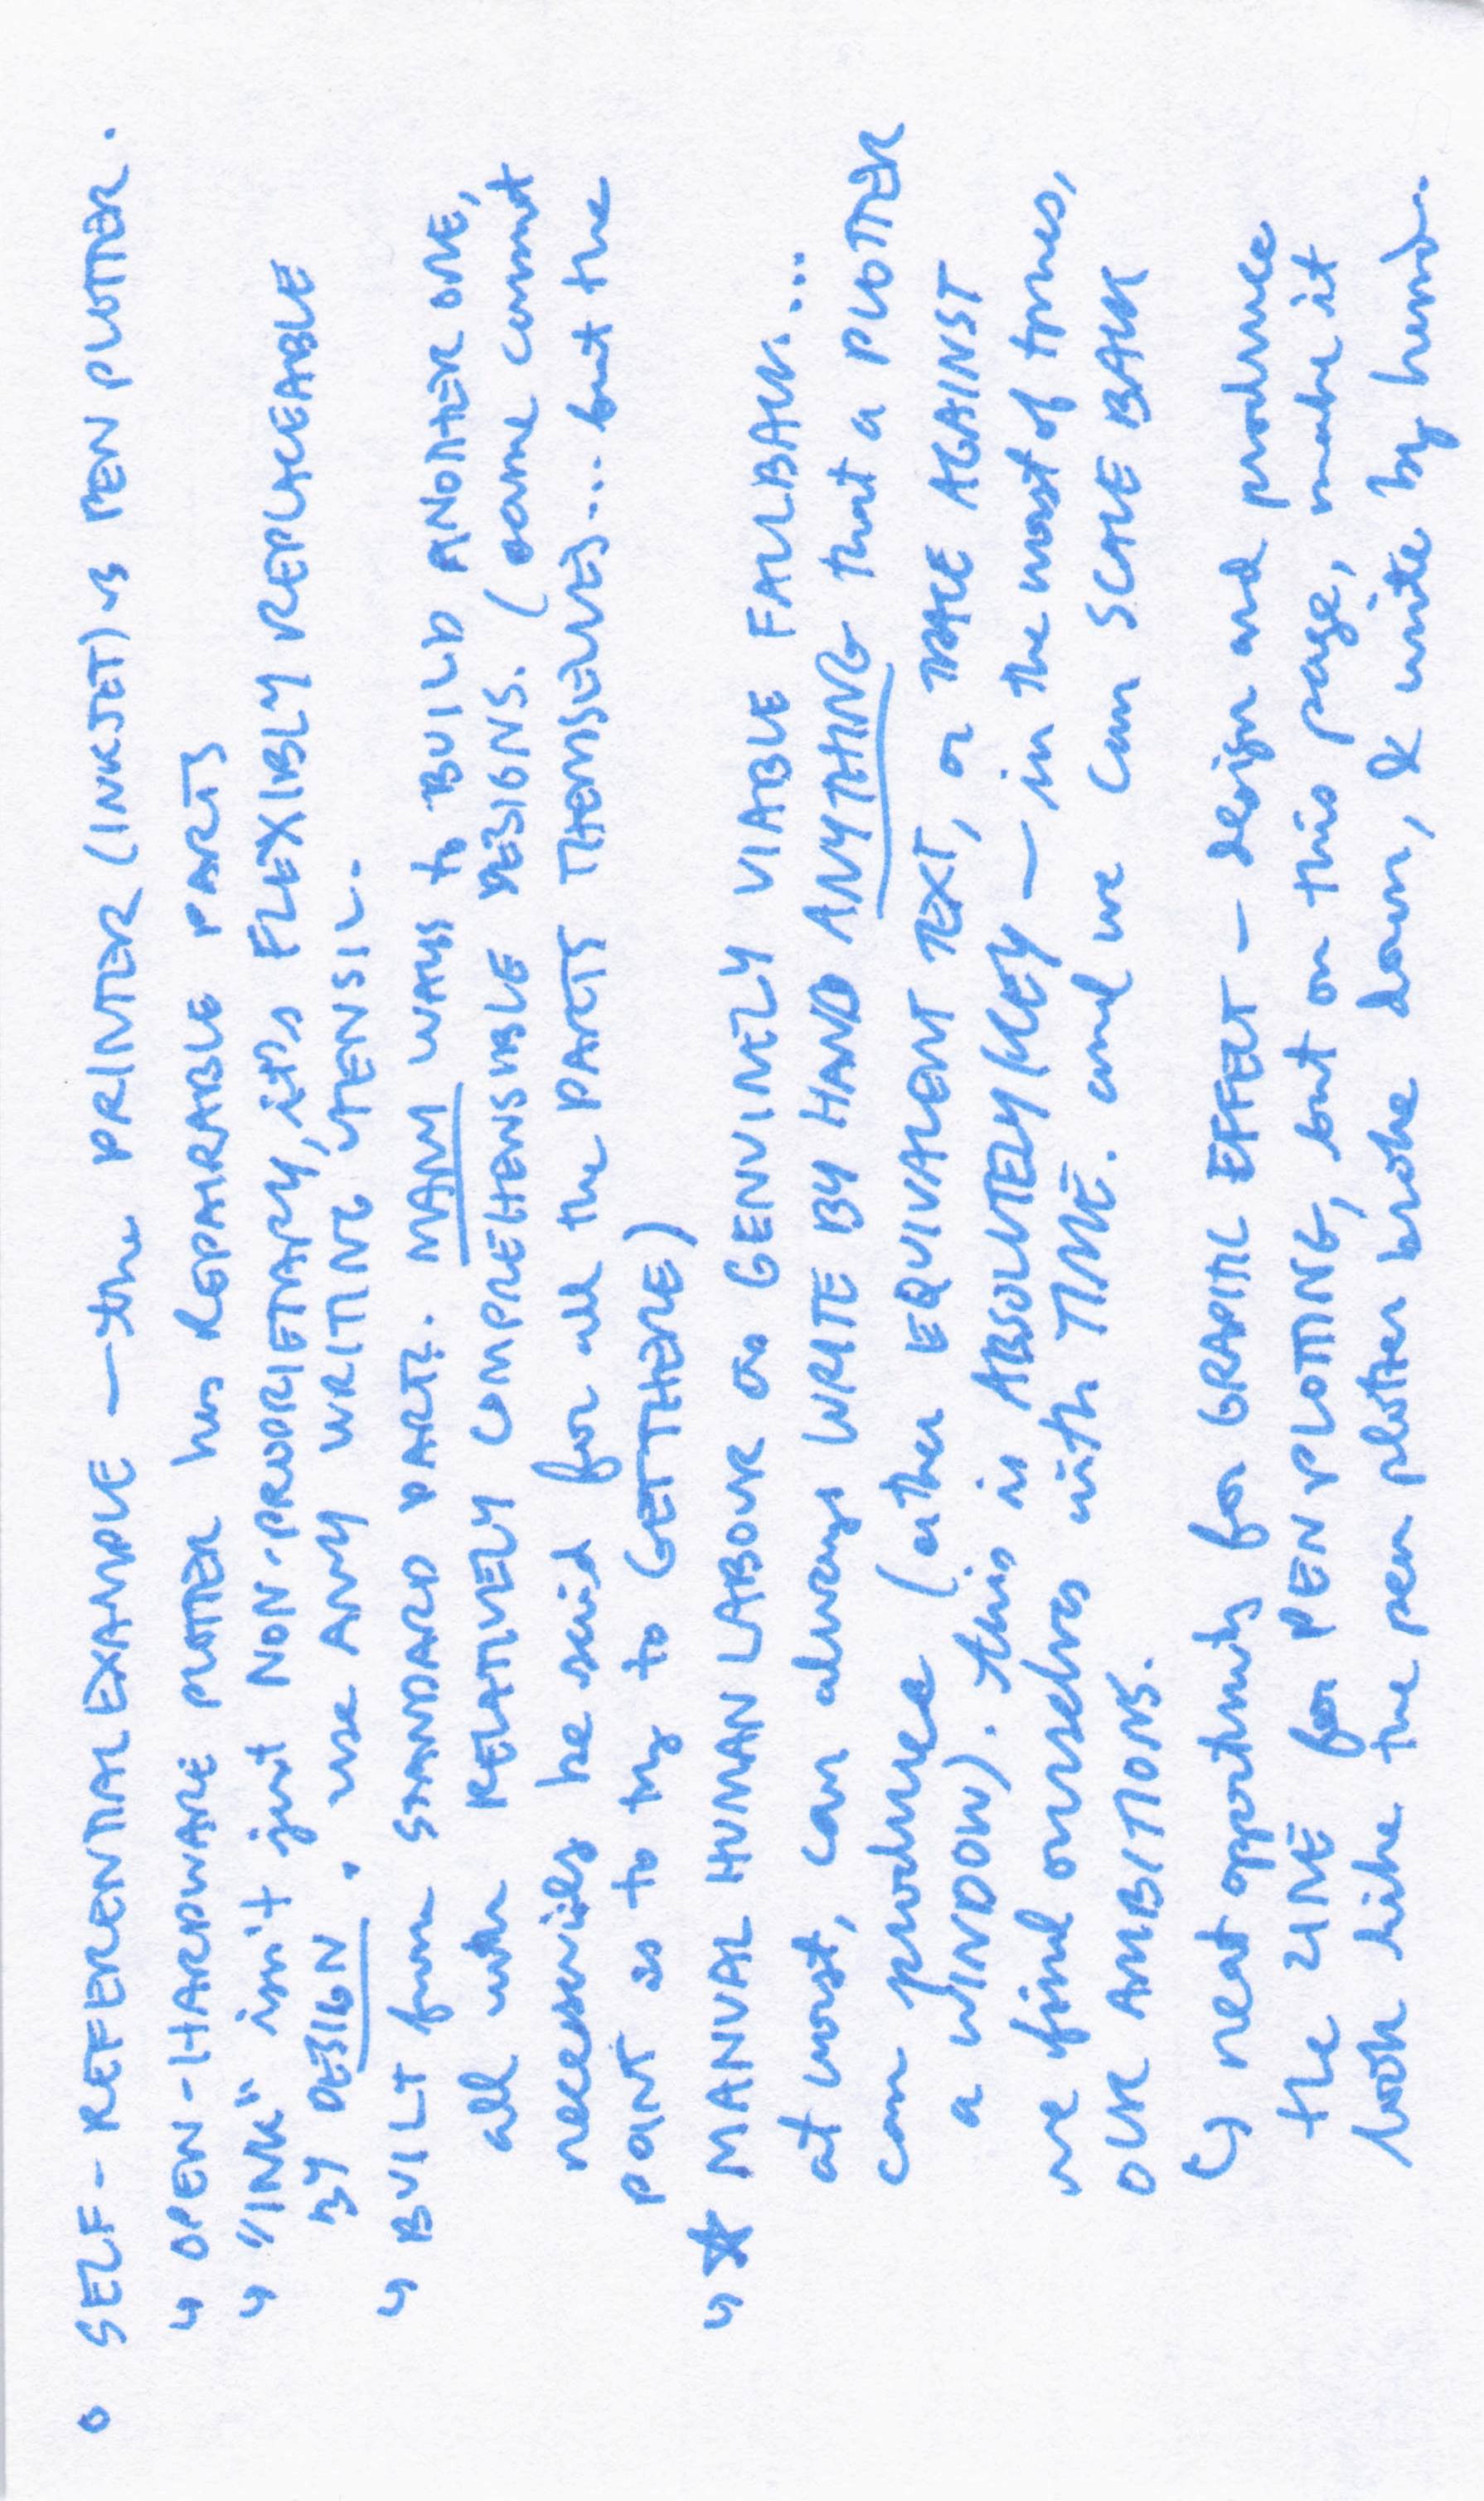 • SELF-REFERENTIAL EXAMPLE — the PRINTER (INKJET) vs PEN PLOTTER.
↳ OPEN-HARDWARE PLOTTER has REPAIRABLE PARTS
↳ "INK" isn't just NON-PROPRIETARY, it's FLEXIBLY REPLACEABLE
BY DESIGN. use ANY WRITING UTENSIL.
↳ BUILT from STANDARD PARTS. MANY WAYS to BUILD ANOTHER ONE,
all with RELATIVELY COMPREHENSIBLE DESIGNS. (same cannot
necessarily be said for all the PARTS THEMSELVES... but the
POINT is to try to GET THERE)
↳ ★ MANUAL HUMAN LABOUR as GENUINELY VIABLE FALLBACK...
at worst, can always WRITE BY HAND ANYTHING that a PLOTTER
can produce (either EQUIVALENT TEXT, or TRACE AGAINST
a WINDOW). this is ABSOLUTELY KEY — in the worst of times,
we find ourselves with TIME. and we can SCALE BACK
OUR AMBITIONS.
↳ neat opportunity for GRAPHIC EFFECT — design and produce
the ZINE for PEN PLOTTING, but on this page, make it
look like the pen plotter broke down, & write by hand.